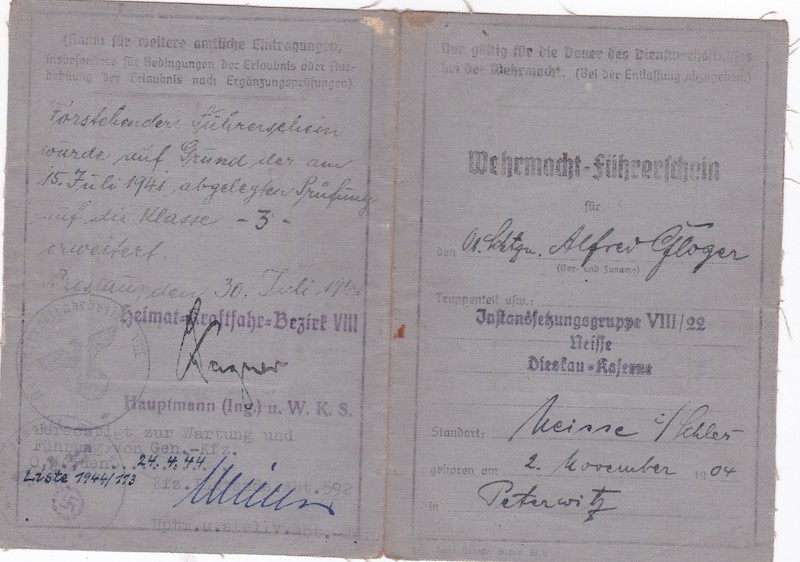 (Raum für weitere amtliche Eintragungen,
insbesondere für Bedingungen der Erlaubnis oder Aus-
dehnung der Erlaubnis nach Ergänzungsprüfungen)
Vorstehender Führerschein
wurde auf Grund der am
15. Juli 1941 abgelegten Prüfung
auf die Klasse - 3 -
erweitert.
Breslau, den 30. Juli 1941
Heimat-Kraftfahr-Bezirk VIII
Wagner
Hauptmann (Ing.) u. W. K. S.
Berechtigt zur Wartung und
Führung von Gen.-Kfz.
24.4.44
Liste 1944/113
Kfz. 592
Hptm.u.stellv.
Nur gültig für die Dauer des Dienstverhältnisses
bei der Wehrmacht. (Bei der Entlassung abzugeben.)
Wehrmacht-Führerschein
für
den Alfred Pfloger
(Vor- und Zuname)
Truppenteil usw.:
Instandsetzungsgruppe VIII/22
Neisse
Dieskau-Kaserne
Standort: Neisse i/Schles
geboren am 2. November 1904
in Peterwitz